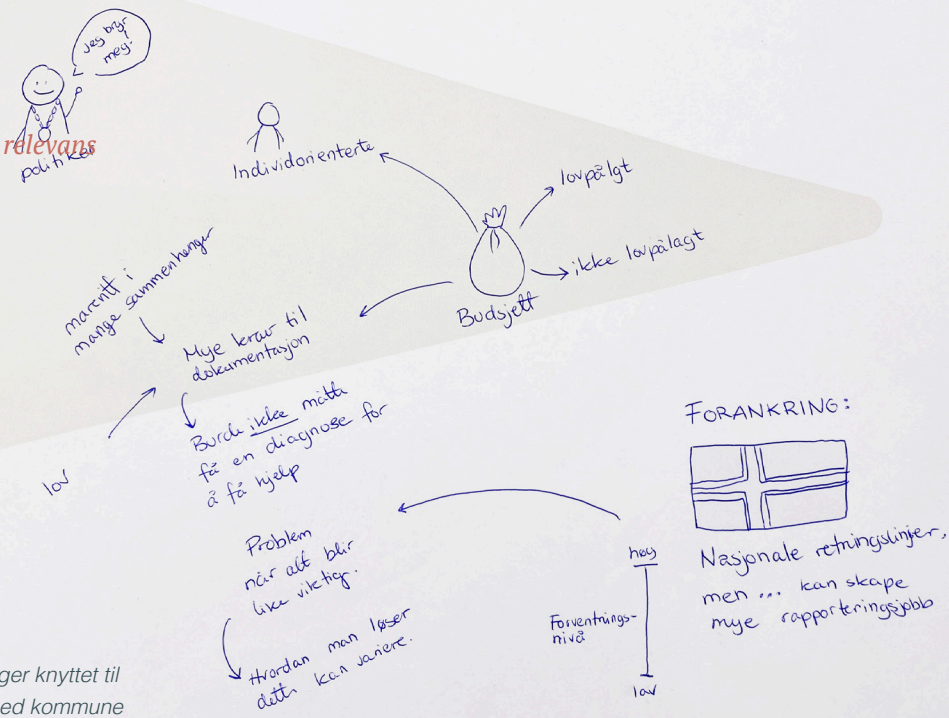 Jeg bryr
meg!
relevans
politiker
Individorienterte
lovpålgt
ikke lovpålagt
Budsjett
mareritt i
mange sammenhenger
Mye krav til
dokumentasjon
lov
Burde ikke måtte
få en diagnose for
å få hjelp
Problem
når alt blir
like viktig.
Hvordan man løser
dette kan variere.
FORANKRING:
Nasjonale retningslinjer,
men ... kan skape
mye rapporteringsjobb
høy
Forventnings-
nivå
lav
ger knyttet til
ed kommune